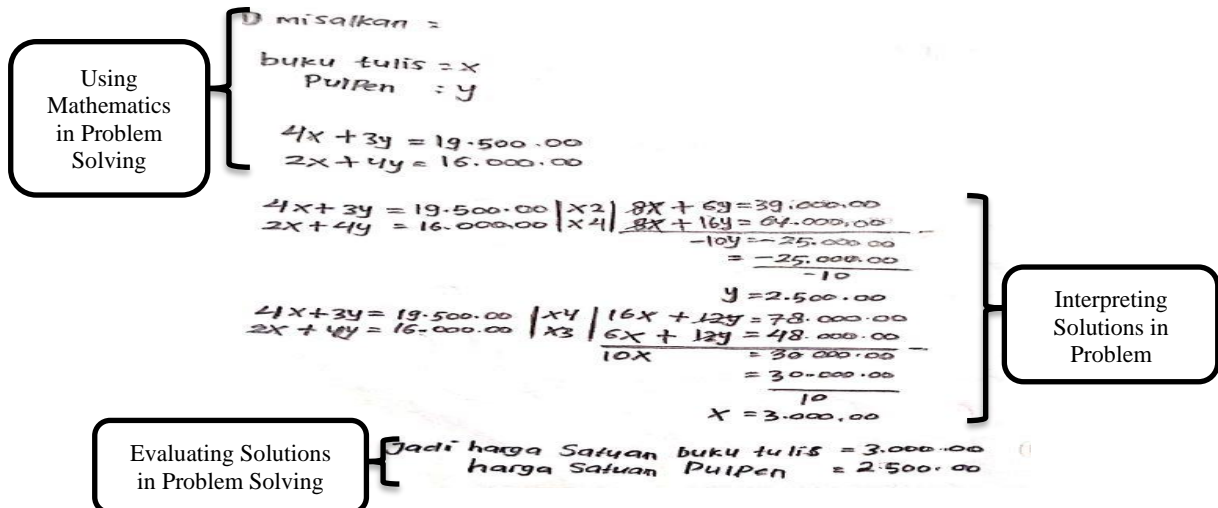 1) misalkan =
buku tulis = x
Pulpen : y
4x + 3y = 19.500.00
2x + 4y = 16.000.00
Using
Mathematics
in Problem
Solving
4x + 3y = 19.500.00 | x2 | 8x + 6y = 39.000,00
2x + 4y = 16.000,00 | x4 | 8x + 16y = 64.000,00 -
-10y = -25.000.00
= -25.000.00
-10
y = 2.500.00
4x + 3y = 19.500.00 | x4 | 16x + 12y = 78.000.00
2x + 4y = 16.000.00 | x3 | 6x + 12y = 48.000.00 -
10x = 30 000.00
= 30.000.00
10
x = 3.000,00
Interpreting
Solutions in
Problem
Evaluating Solutions
in Problem Solving
Jadi harga Satuan buku tulis = 3.000.00
harga Satuan Pulpen = 2.500.00